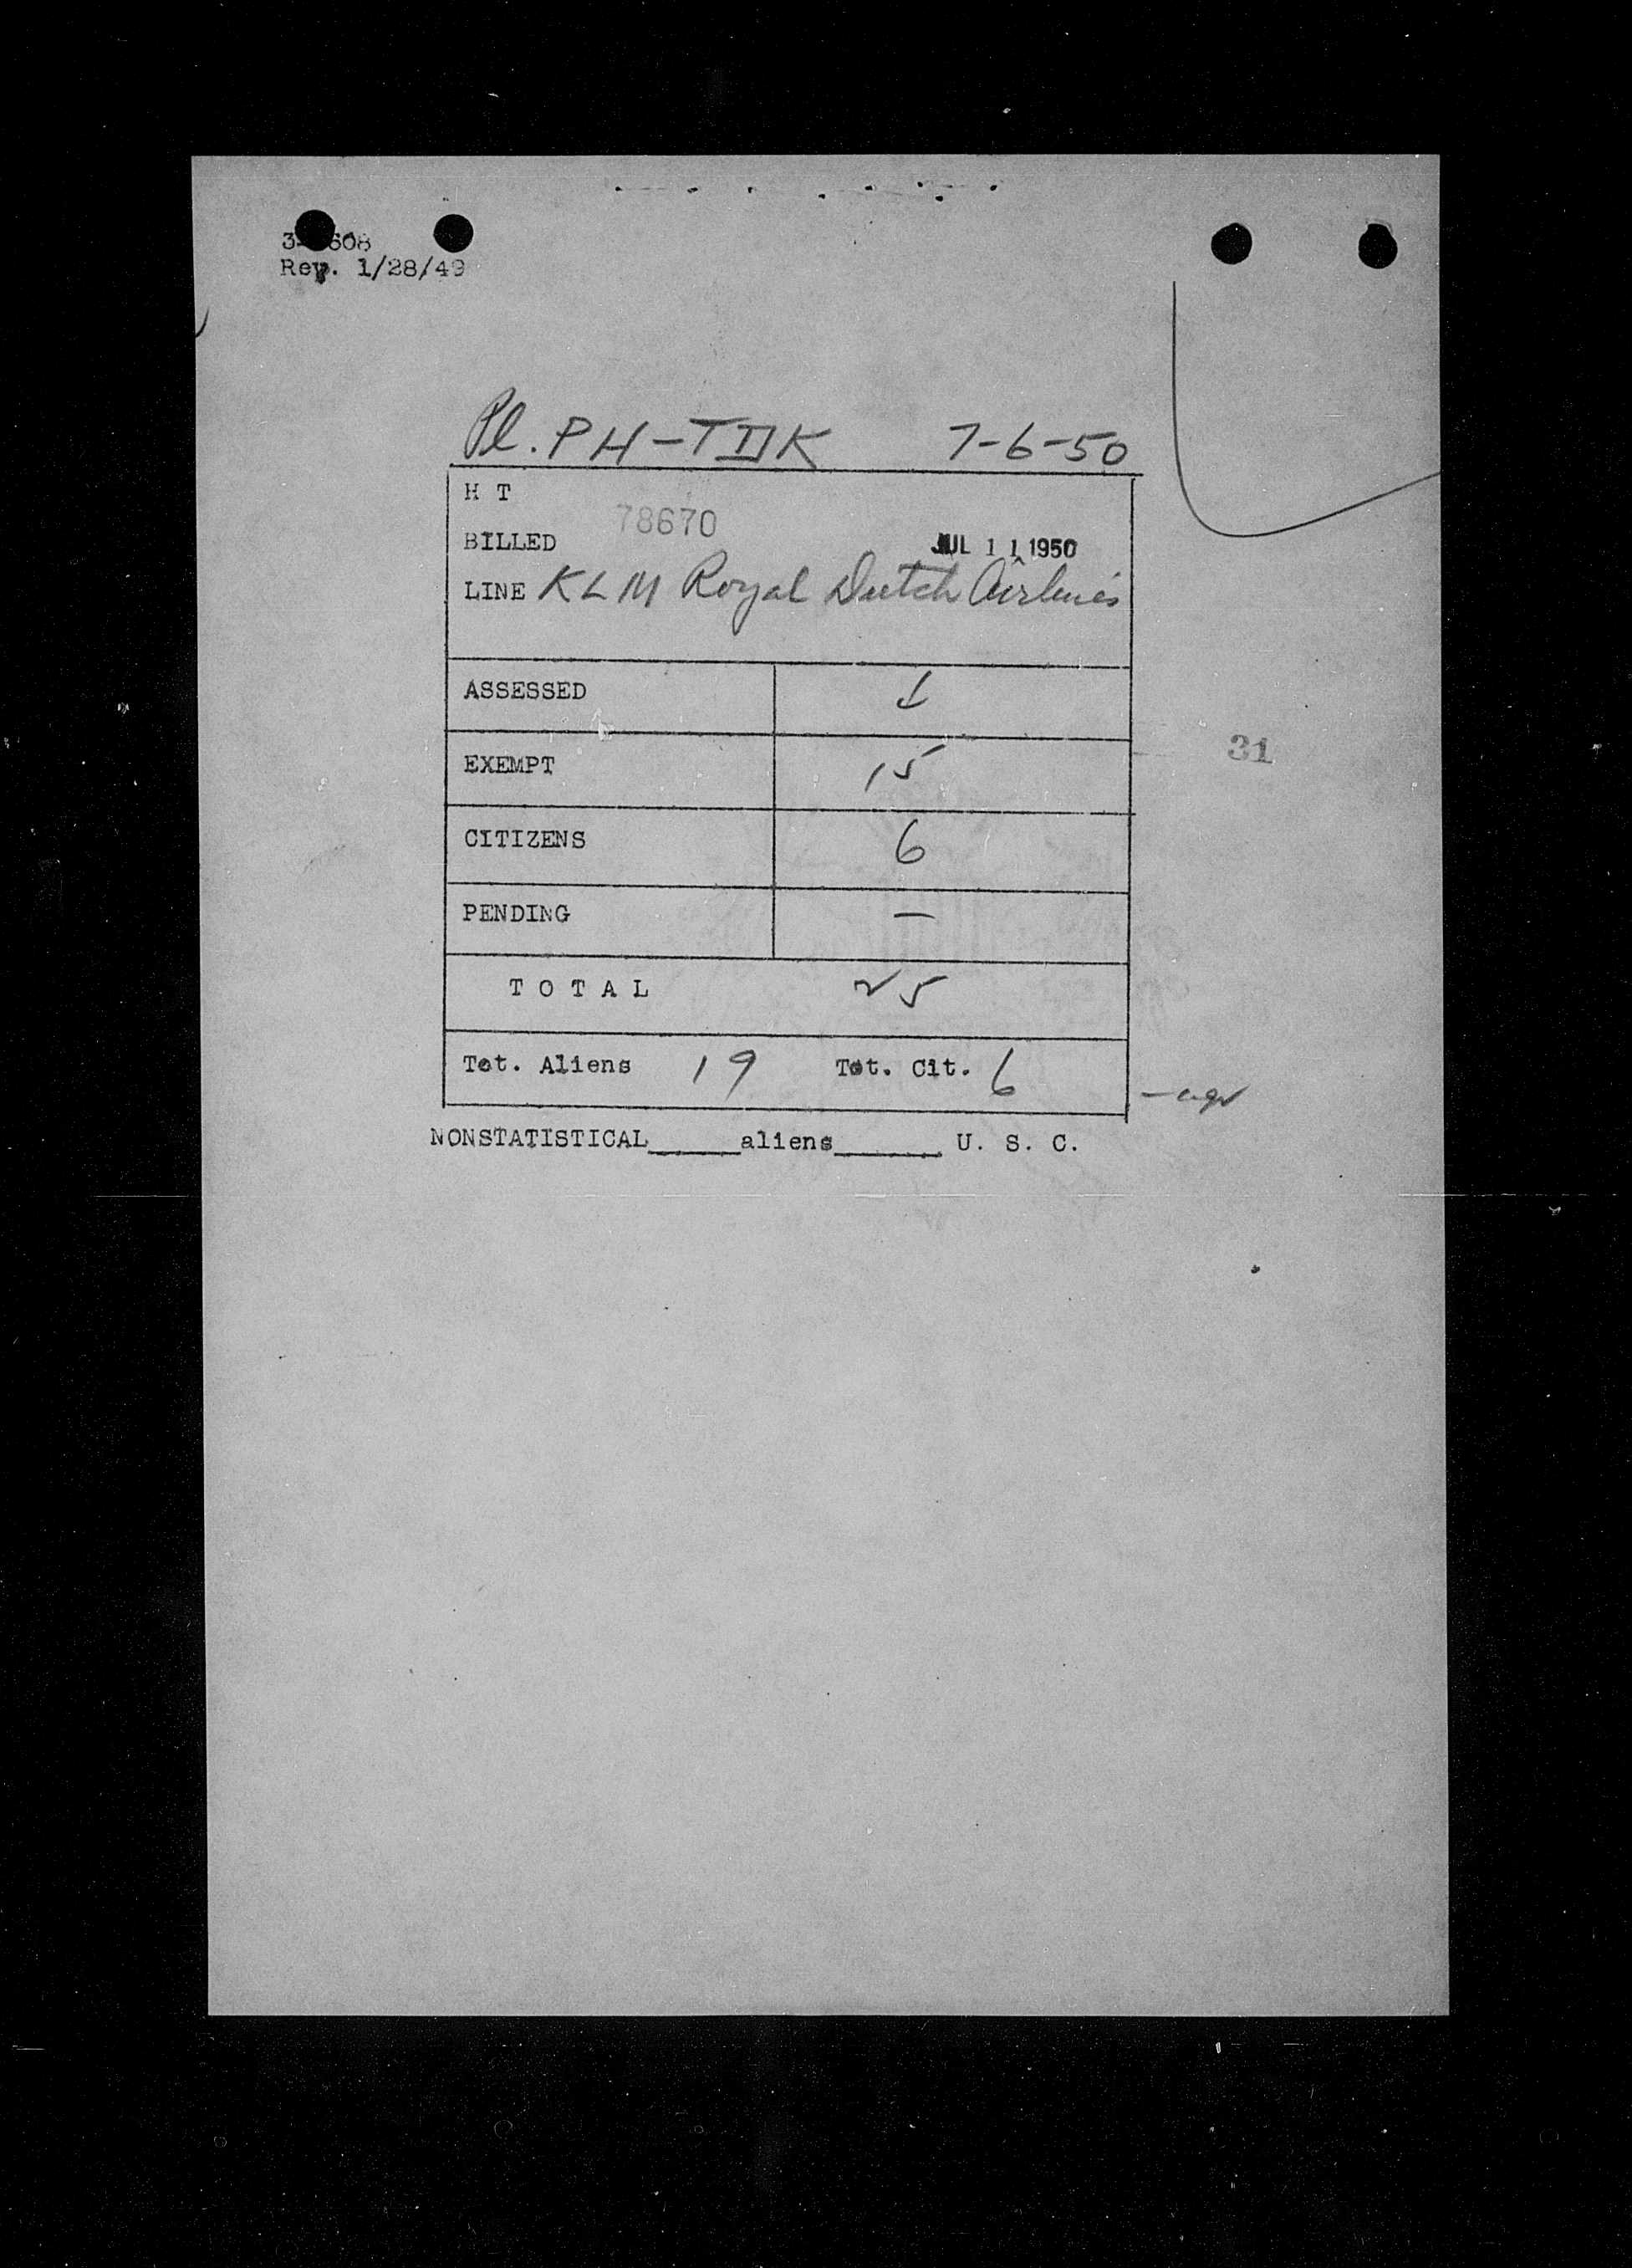 Rev. 1/28/49
Pl. PH-TDK 7-6-50
H T
78670
BILLED JUL 11 1950
LINE KLM Royal Dutch Airlines
ASSESSED 4
EXEMPT 15
31
CITIZENS 6
PENDING —
TOTAL 25
Tot. Aliens 19 Tot. Cit. 6
NONSTATISTICAL_____aliens______ U. S. C.